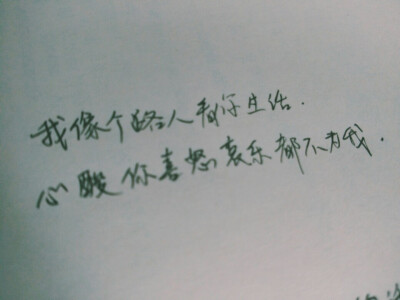 我像个路人看你生活.
心酸你喜怒哀乐都不为我.